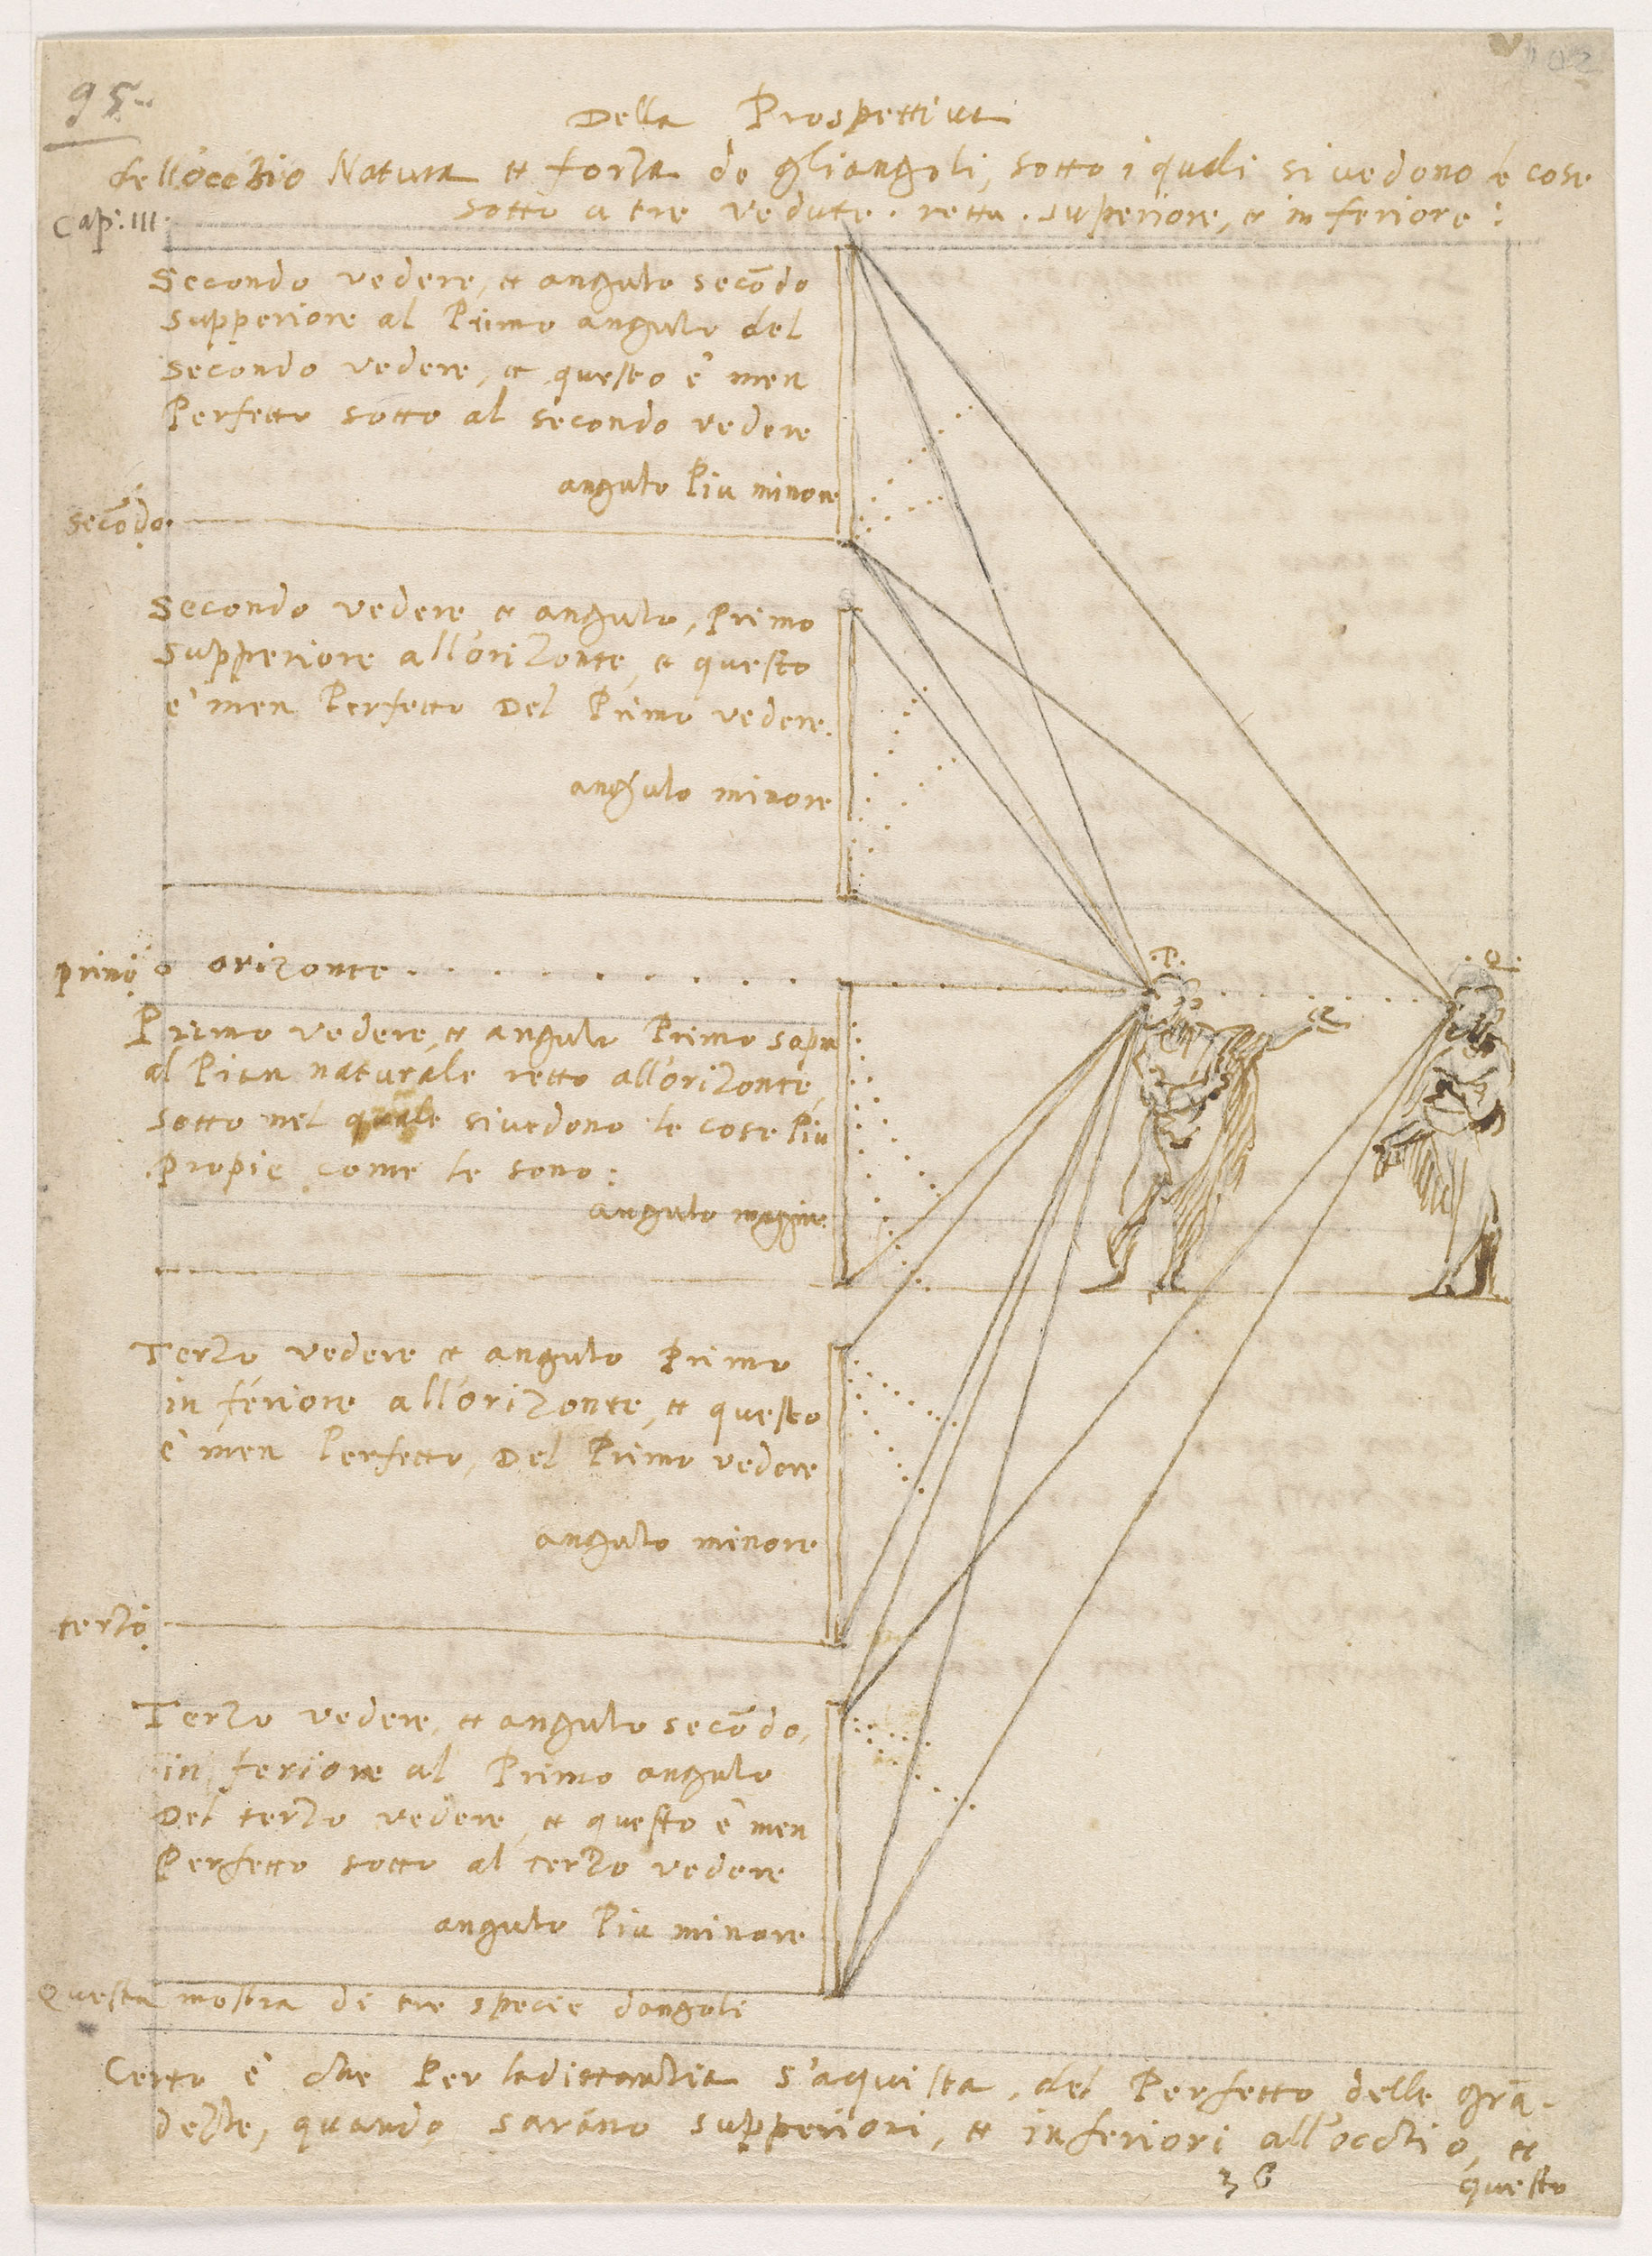 95.
102
Della Prospettiva
dell'occhio Natura et forza de gliangoli, sotto i quali si vedono le cose
Cap: III.
sotto a tre vedute. retta. superiore, et inferiore:
Secondo vedere, et angulo secōdo
supperiore al Primo angulo del
secondo vedere, et questo e' men
Perfetto sotto al secondo vedere
angulo Piu minore
secōdo
Secondo vedere et angulo, Primo
supperiore all'orizonte, et questo
e' men Perfetto Del Primo vedere.
angulo minore
primo orizonte
.P.
.Q.
Primo vedere, et angulo Primo sopra
al Pian naturale retto all'orizonte,
sotto nel quale sivedono le cose Piu
propie come le sono:
angulo maggiore
Terzo vedere et angulo Primo
inferiore all'orizonte, et questo
e' men Perfetto, Del Primo vedere
angulo minore
terzo
Terzo vedere, et angulo secōdo,
inferiore al Primo angulo
Del terzo vedere, et questo e' men
Perfetto sotto al terzo vedere
angulo Piu minore
Questa mostra di tre specie d'angoli
Certo e' che Per la distantia s'aquista, del Perfetto delle grā-
dezze, quando sarāno supperiori, et inferiori all'occhio, et
36
questo